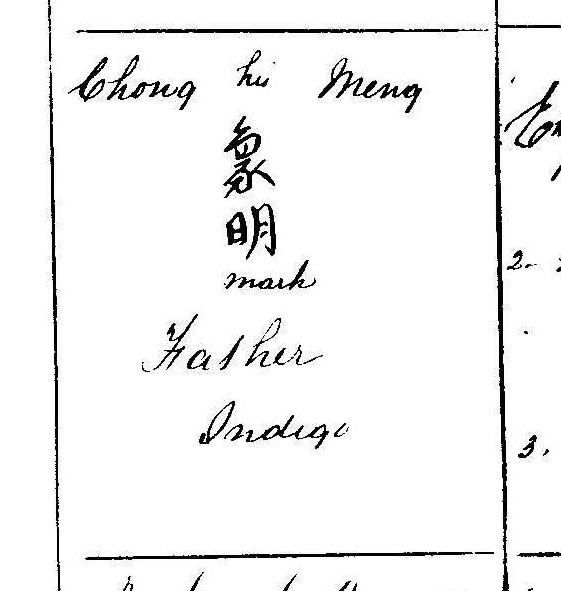 Chong his Meng
象
明
mark
Father
Indigo
2.
3.